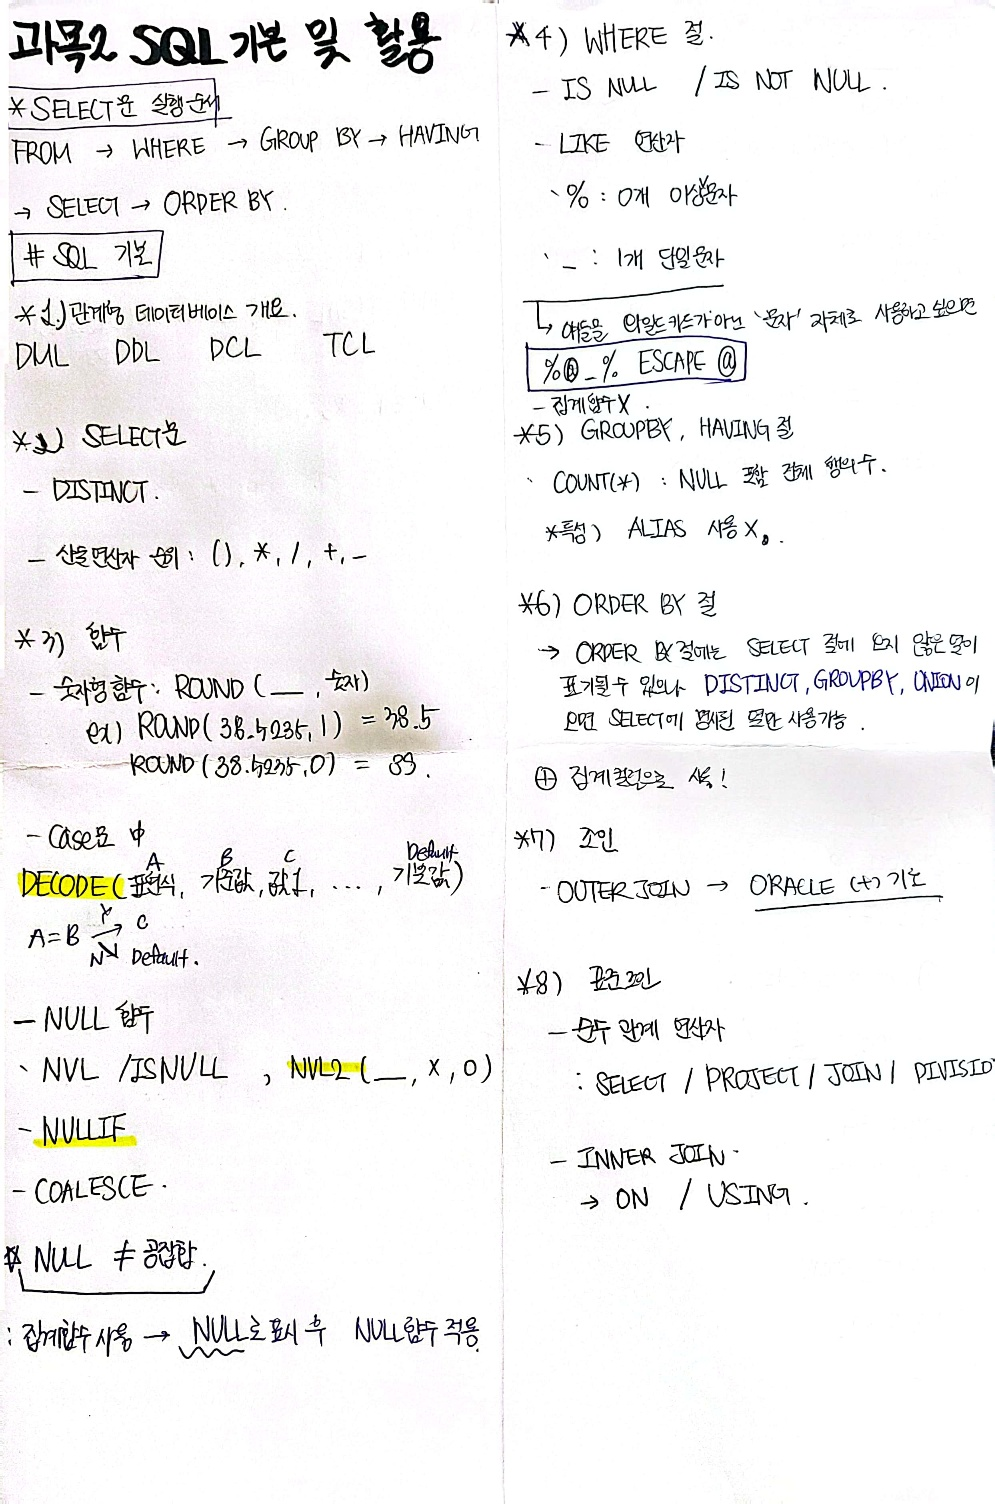 과목2 SQL 기본 및 활용
*SELECT문 실행순서
FROM → WHERE → GROUP BY → HAVING
→ SELECT → ORDER BY.
# SQL 기본
*1.) 관계형 데이터베이스 개요.
DML DDL DCL TCL
*2) SELECT문
- DISTINCT.
- 산술연산자 순위 : (), *, /, +, -
*3) 함수
- 숫자형함수: ROUND ( __ , 숫자)
ex) ROUND(38.5235, 1) = 38.5
ROUND (38.5235, 0) = 39.
- Case문 中
A B C Default
DECODE(표현식, 기준값, 값1, ..., 기본값)
Y
A=B → C
N ↘ Default.
- NULL 함수
、 NVL /ISNULL , NVL2 ( __ , X, O)
- NULLIF
- COALESCE.
* NULL ≠ 공집합.
: 집계함수 사용 → NULL로 표시 후 NULL함수 적용.
*4) WHERE 절.
- IS NULL / IS NOT NULL.
- LIKE 연산자
、% : 0개 이상 문자
、_ : 1개 단일문자
↳ 얘들을 와일드카드가 아닌 '문자' 자체로 사용하고 싶으면
%@_% ESCAPE @
- 집계함수X.
*5) GROUPBY, HAVING 절
、 COUNT(*) : NULL 포함 전체 행의 수.
*특성) ALIAS 사용 X.
*6) ORDER BY 절
→ ORDER BY절에는 SELECT 절에 오지 않은 열이
표기될 수 있으나 DISTINCT, GROUPBY, UNION이
오면 SELECT에 명시된 열만 사용가능.
⊕ 집계컬럼으로 !
*7) 조인
- OUTER JOIN → ORACLE (+) 기호
*8) 표준조인
- 순수 관계 연산자
: SELECT / PROJECT / JOIN / DIVISIO
- INNER JOIN.
→ ON / USING.